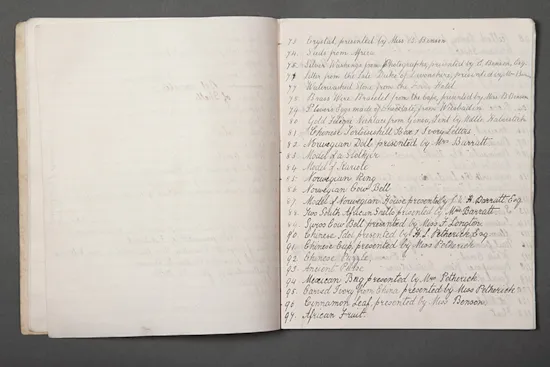 73. Crystal, presented by Miss B. Benson
74. Seeds from Africa
75. Silver Washings from Photographs, presented by S. Benson, Esq.
76. Letter from the late Duke of Devonshire, presented by
77. Watermarked Glass from the Field
78. Brass Wire Bracelet from the Cape, presented by Mrs. Benson
79. Plovers Eggs made of Chocolate, from Wiesbaden
80. Gold Filigree Necklace from Genoa, Lent by Mdlle.
81. Chinese Tortoiseshell Box & Ivory Letters
82. Norwegian Doll, presented by Mrs. Barratt
83. Model of a
84. Model of
85. Norwegian Ring
86. Norwegian Cow Bell
87. Model of Norwegian House, presented by J. H. Barratt, Esq.
88. Two South African presented by Mrs. Barratt
89. Swiss Cow Bell presented by Miss F. Longton
90. Chinese Idol, presented by H. S. Petherick, Esq.
91. Chinese Cup, presented by Miss Petherick
92. Chinese Puzzle
93. Ancient
94. Mexican Bag presented by Mrs. Petherick
95. Carved Ivory from China, presented by Miss Petherick
96. Cinnamon Leaf, presented by Miss Benson
97. African Fruit.